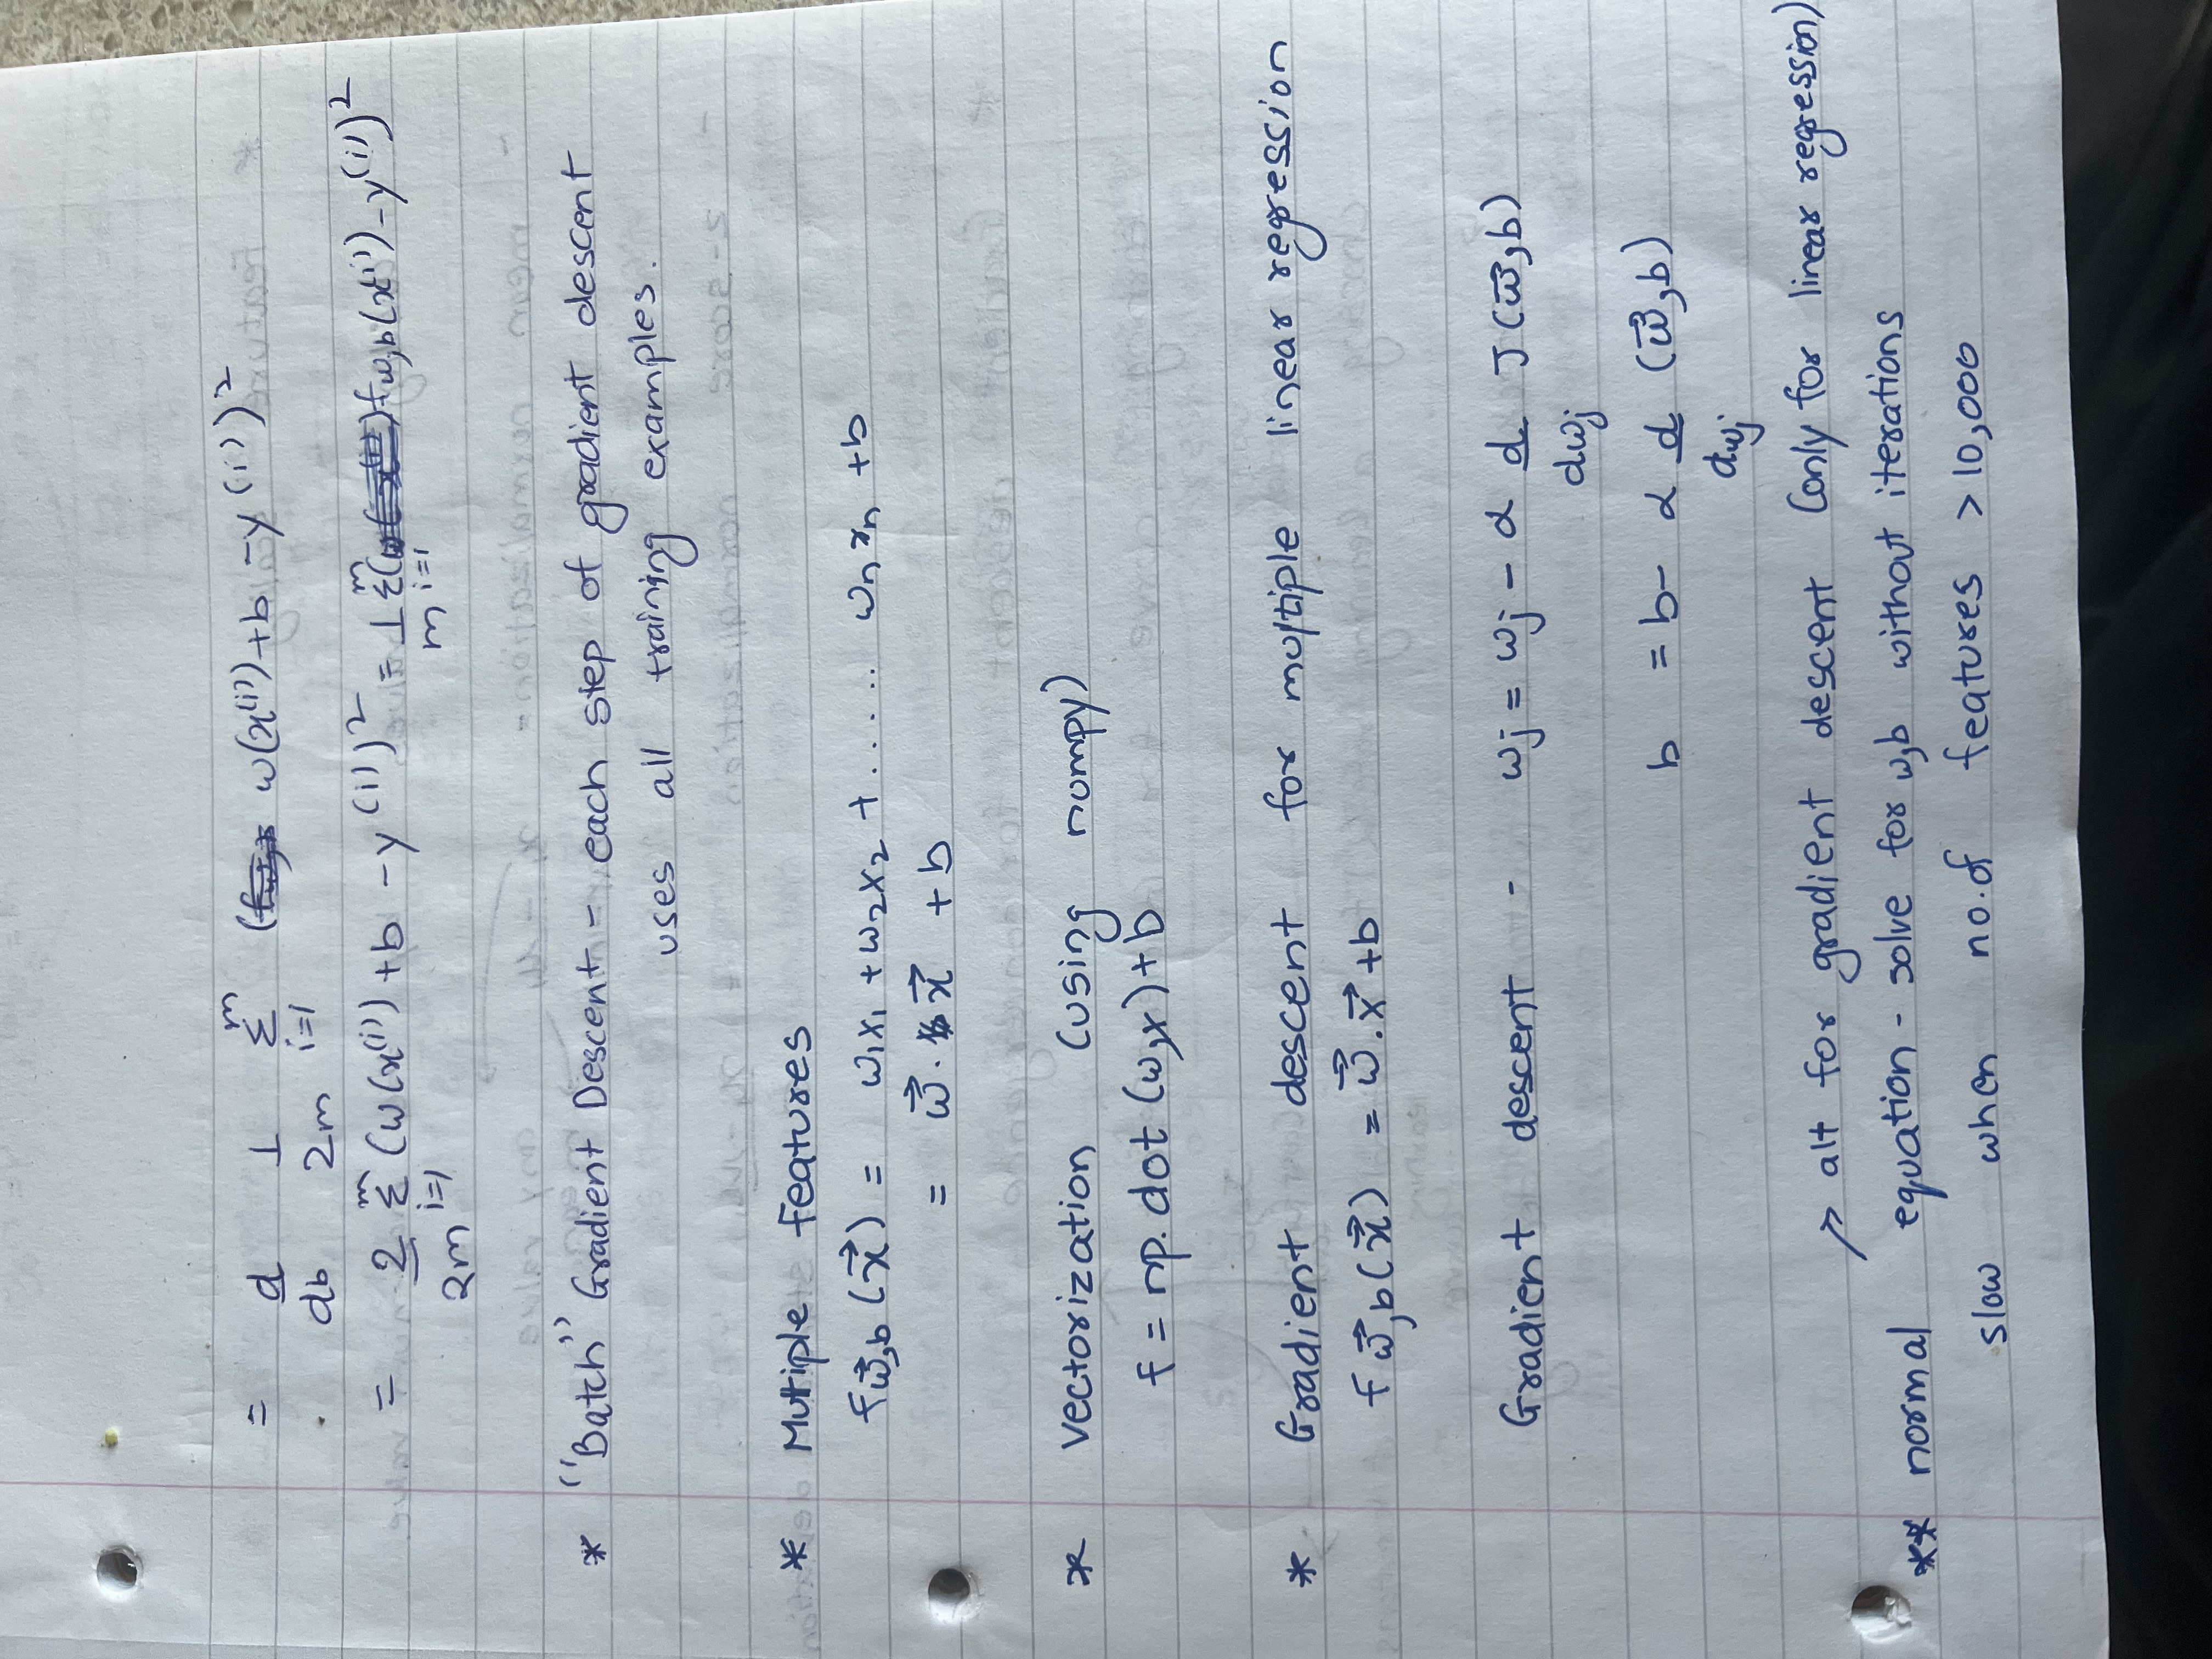 = d/db 1/2m Σ_{i=1}^{m} ( w(x^(i)) + b - y^(i))²
= 2/2m Σ_{i=1}^{m} (w(x^(i)) + b - y^(i))² = 1/m Σ_{i=1}^{m} ( f_{w,b}(x^(i)) - y^(i))²
* "Batch" Gradient Descent - each step of gradient descent
uses all training examples.
* Multiple features
f_{w⃗,b} (x⃗) = w₁x₁ + w₂x₂ + ...... wₙxₙ + b
= w⃗ . x⃗ + b
* vectorization (using numpy)
f = np.dot (w,x) + b
* Gradient descent for multiple linear regression
f_{w⃗,b}(x⃗) = w⃗ . x⃗ + b
Gradient descent - wj = wj - α d/dwj J(w⃗,b)
b = b - α d/dwj (w⃗,b)
↗ alt for gradient descent (only for linear regression)
** normal equation - solve for w,b without iterations
slow when no.of features > 10,000